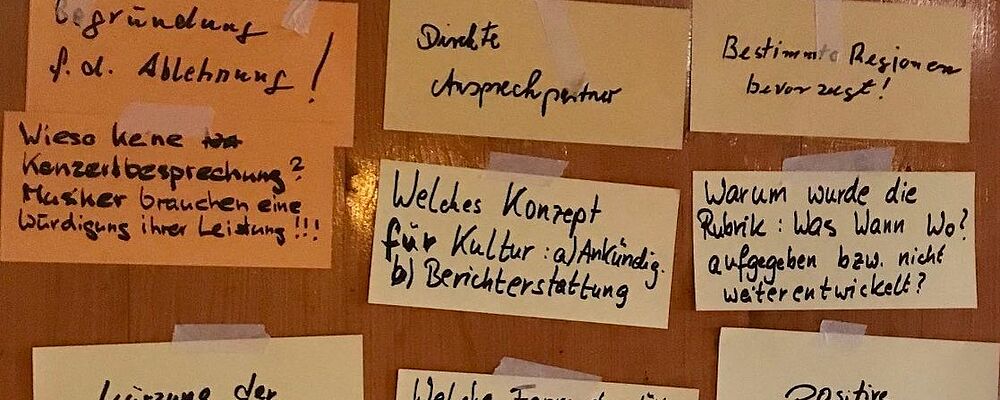 Begründung
f. d. Ablehnung!
Direkte
Ansprechpartner
Bestimmte Regionen
bevorzugt!
Wieso keine
Konzertbesprechung?
Musiker brauchen eine
Würdigung ihrer Leistung!!!
Welches Konzept
für Kultur: a) Ankündig.
b) Berichterstattung
Warum wurde die
Rubrik: Was Wann Wo?
aufgegeben bzw. nicht
weiterentwickelt?
Kürzung der
Welche
Positive